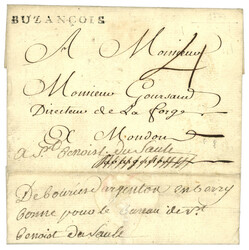 BUZANÇOIS
4
A Monsieur
Monsieur Goursaud
Directeur de La forge
A Mondon
a St Benoist du Sault
De bourier dargenton en berry
bonne pour le bureau de St
Benoist du Sault